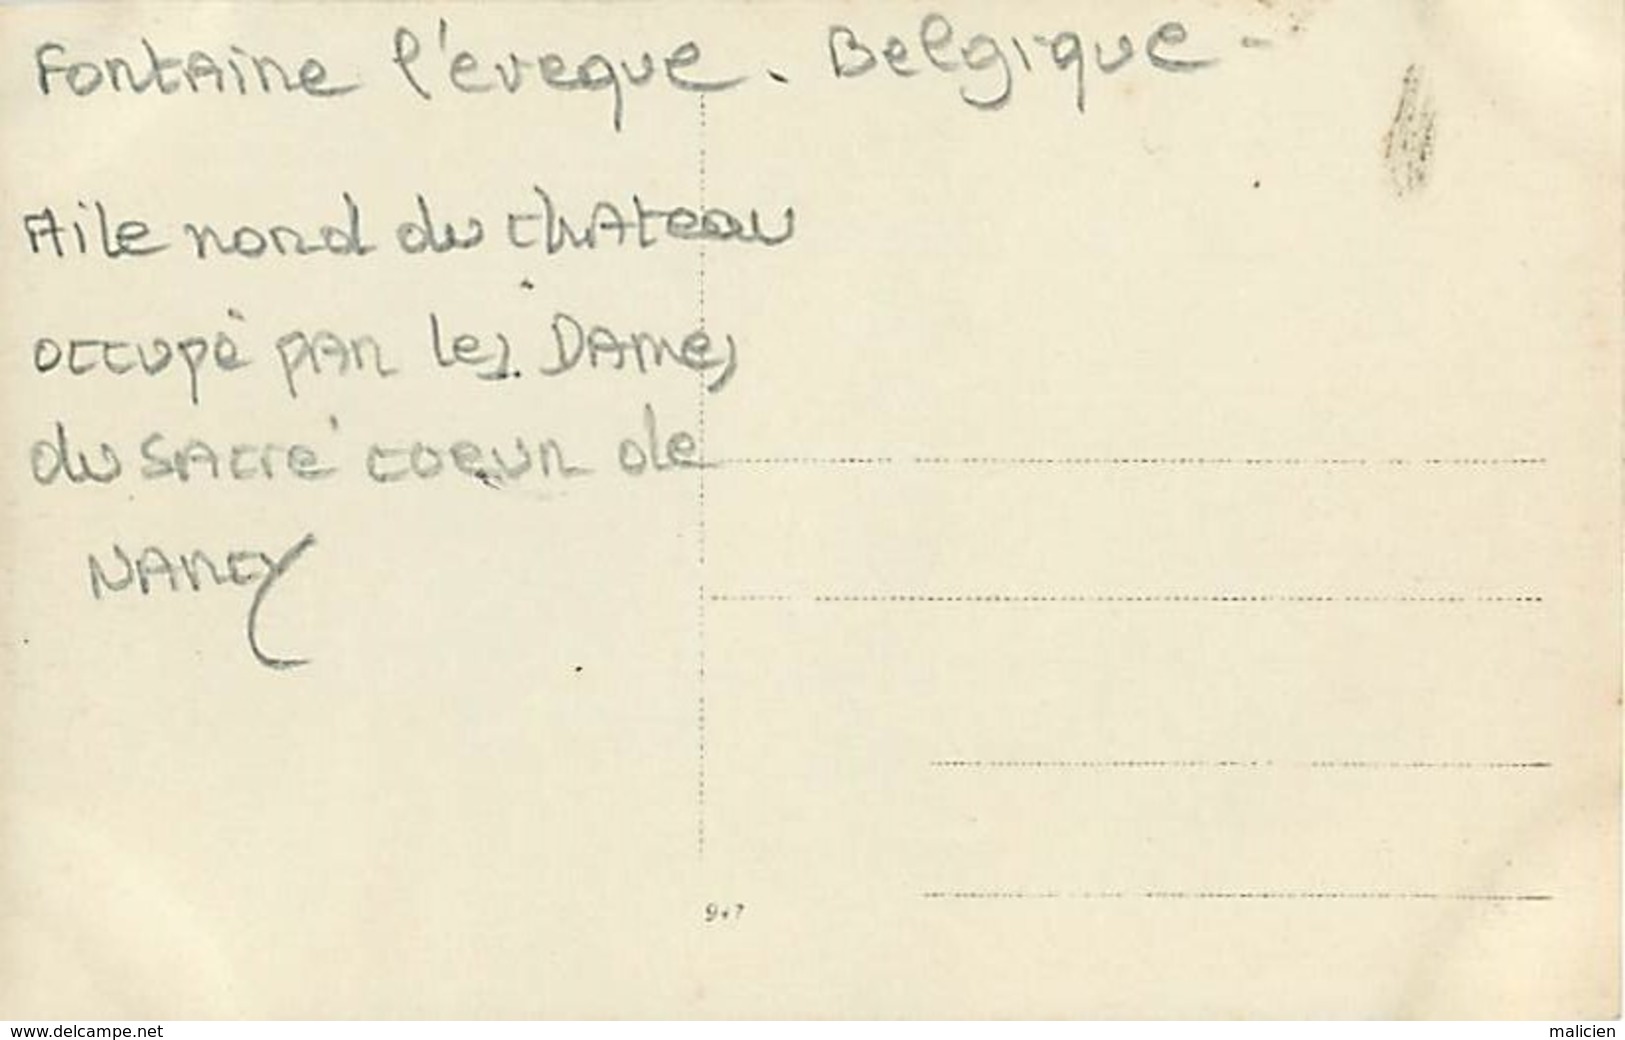 Fontaine l'eveque. Belgique -
Aile nord du chateau
occupé par les Dames
du Sacré coeur de
Nancy
www.delcampe.net
malicien